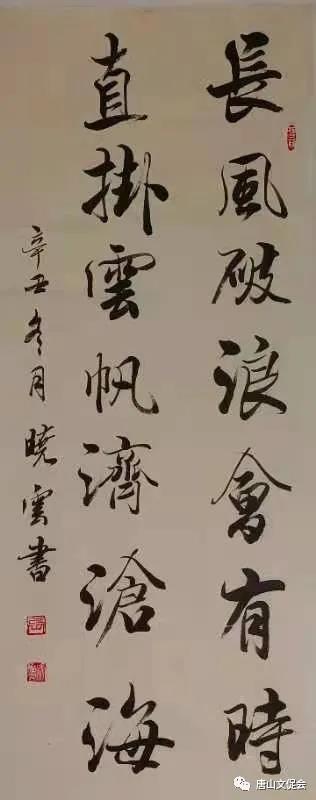 長風破浪會有時
直掛雲帆濟滄海
辛丑冬月曉雲書
唐山文促会